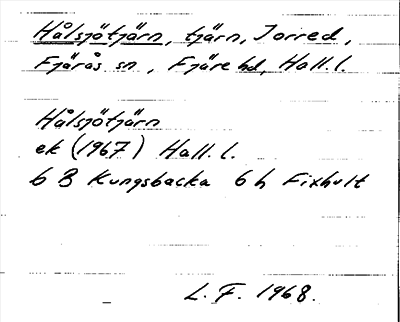 Hålsjötjärn, tjärn, Jorred,
Fjärås sn, Fjäre hd, Hall. l.
Hålsjötjärn
ek (1967) Hall. l.
6 B Kungsbacka 6 h Fixhult
L. F. 1968.